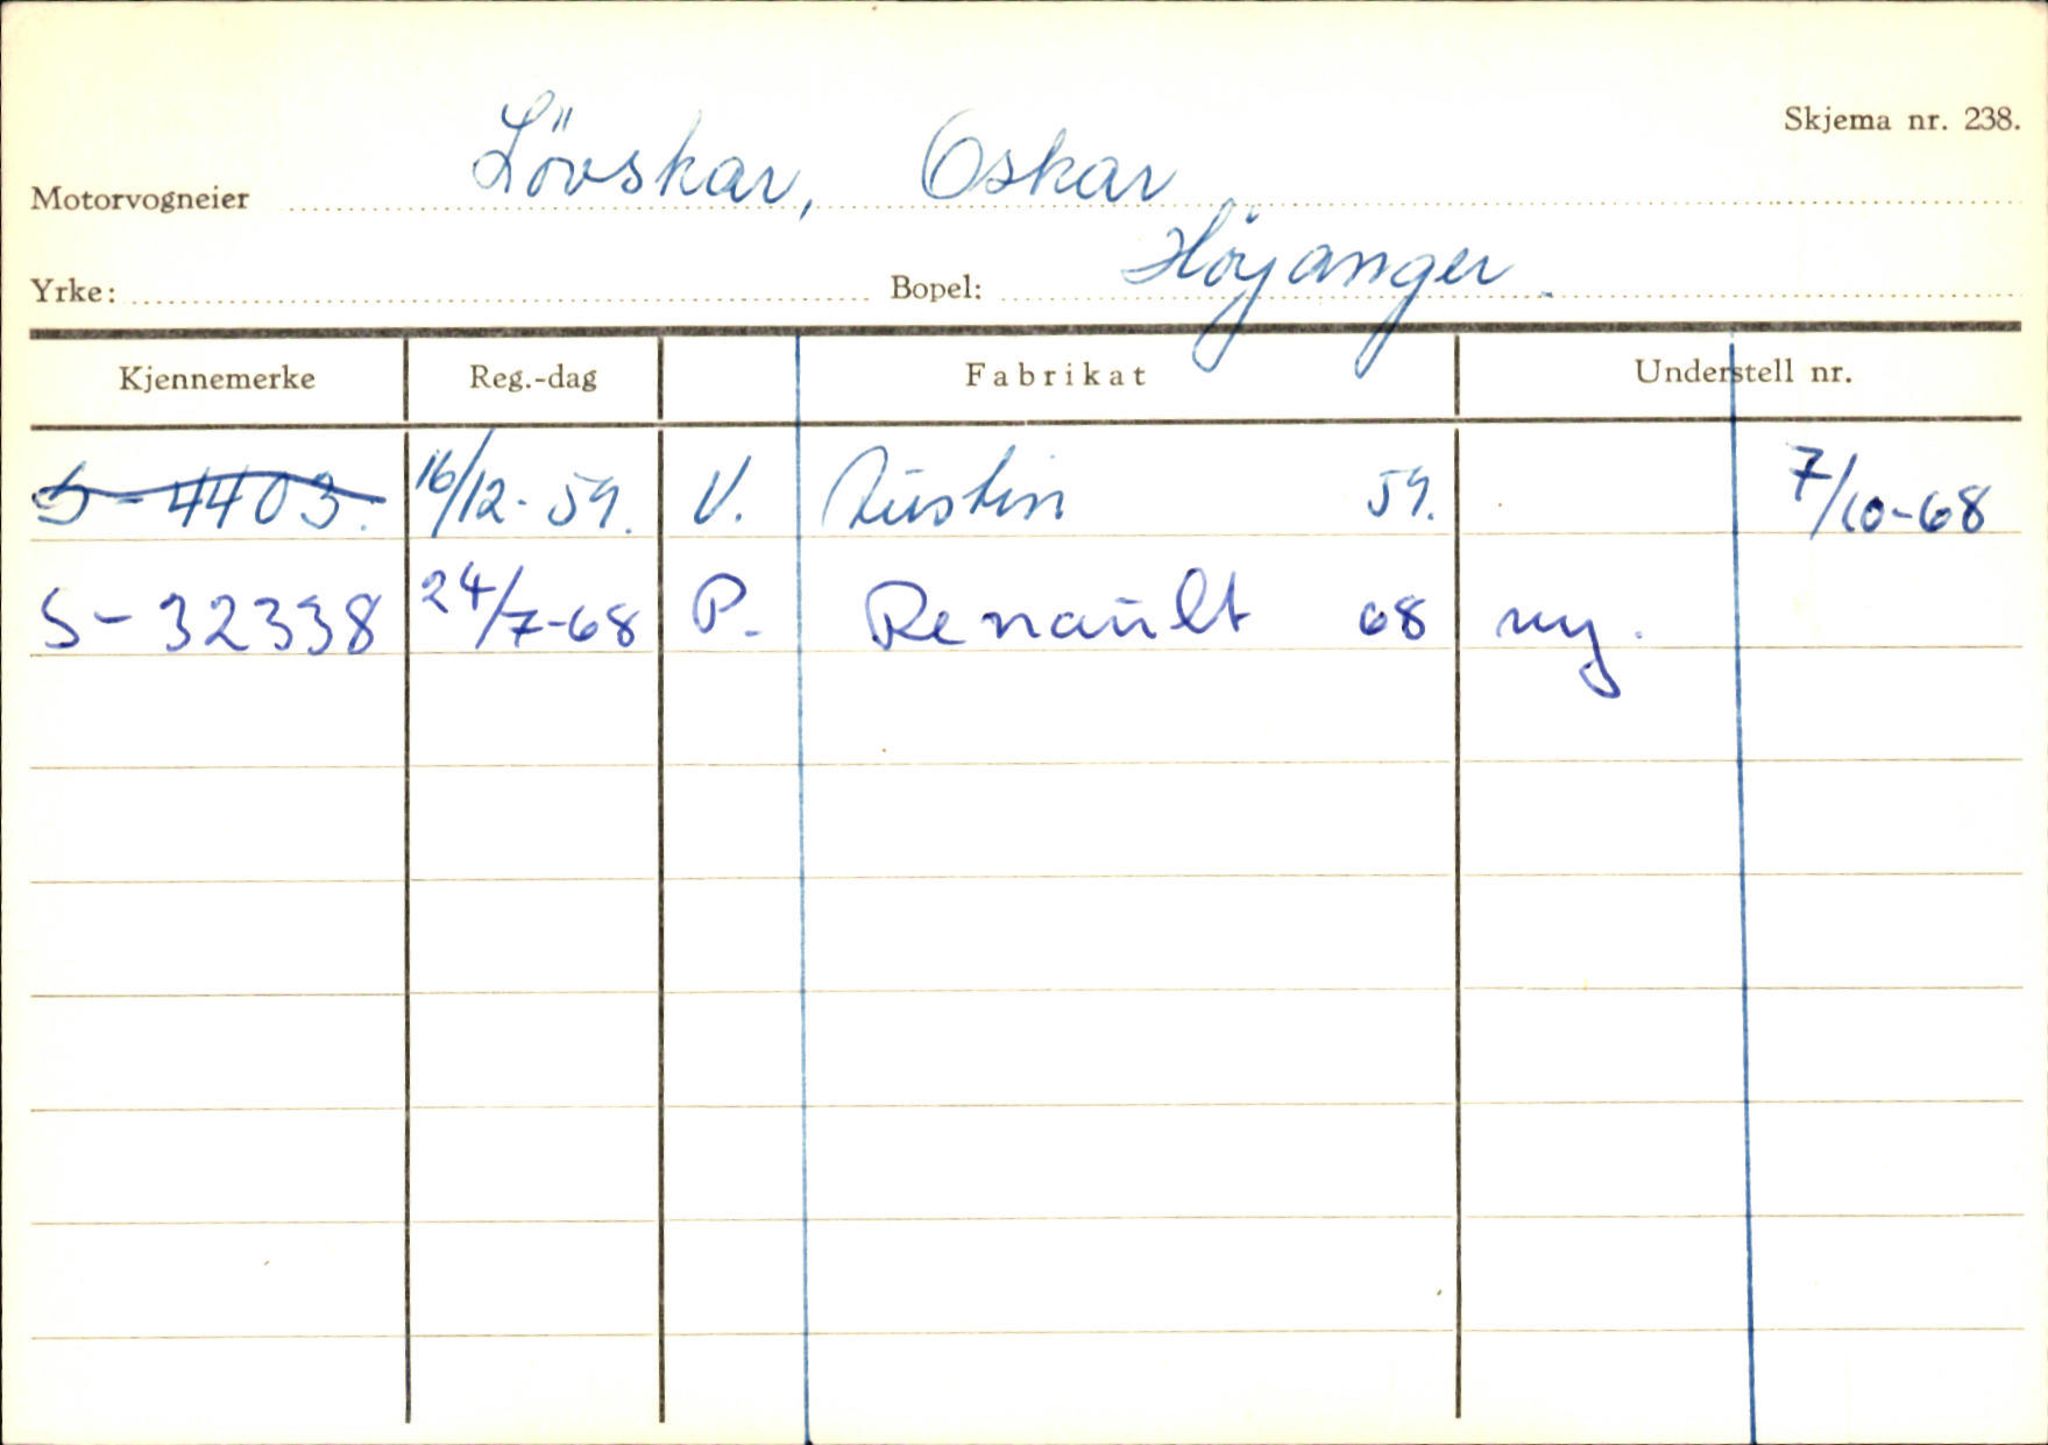 Skjema nr. 238.
Motorvogneier Lövskar, Oskar
Yrke: Bopel: Höyanger.
Kjennemerke Reg.-dag Fabrikat Understell nr.
S-4403. 16/12-59. V. Austin 59. 7/10-68
S-32338 24/7-68 P. Renault 68 ny.